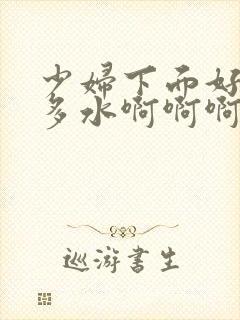 少婦下而好
多水啊啊啊
巡游書生